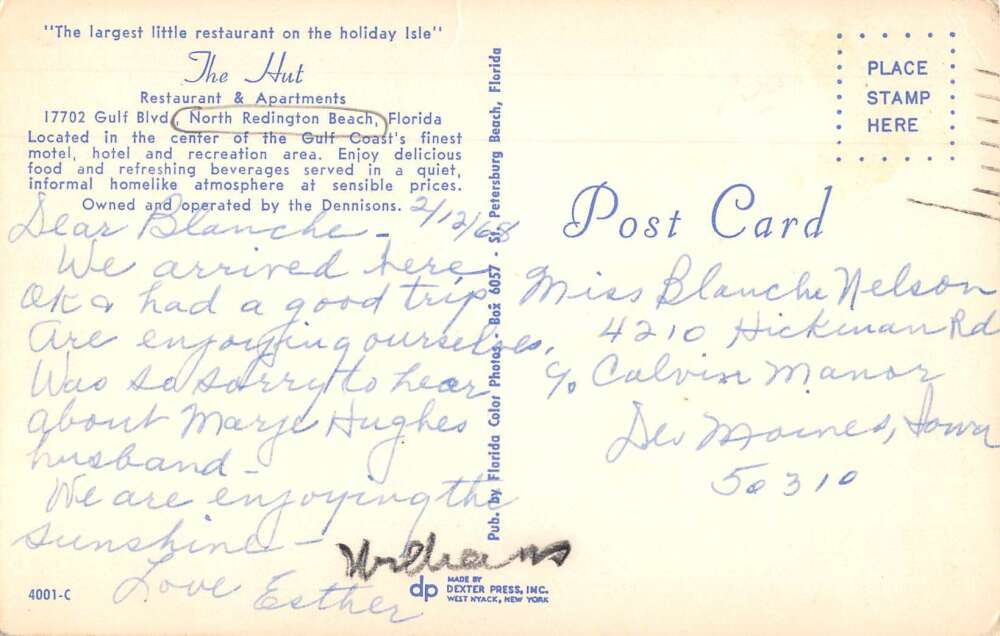 "The largest little restaurant on the holiday Isle"
The Hut
Restaurant & Apartments
17702 Gulf Blvd., North Redington Beach, Florida
Located in the center of the Gulf Coast's finest
motel, hotel and recreation area. Enjoy delicious
food and refreshing beverages served in a quiet,
informal homelike atmosphere at sensible prices.
Owned and operated by the Dennisons.
2/12/68
Dear Blanche -
We arrived here
OK & had a good trip
Are enjoying ourselves.
Was so sorry to hear
about Marje Hughes
husband -
We are enjoying the
sunshine -
Love Esther
Williams
4001-C
Pub. by Florida Color Photos - Box 6057 - St. Petersburg Beach, Florida
dp MADE BY
DEXTER PRESS, INC.
WEST NYACK, NEW YORK
PLACE
STAMP
HERE
Post Card
Miss Blanche Nelson
4210 Hickman Rd
c/o Calvin Manor
Des Moines, Iowa
50310